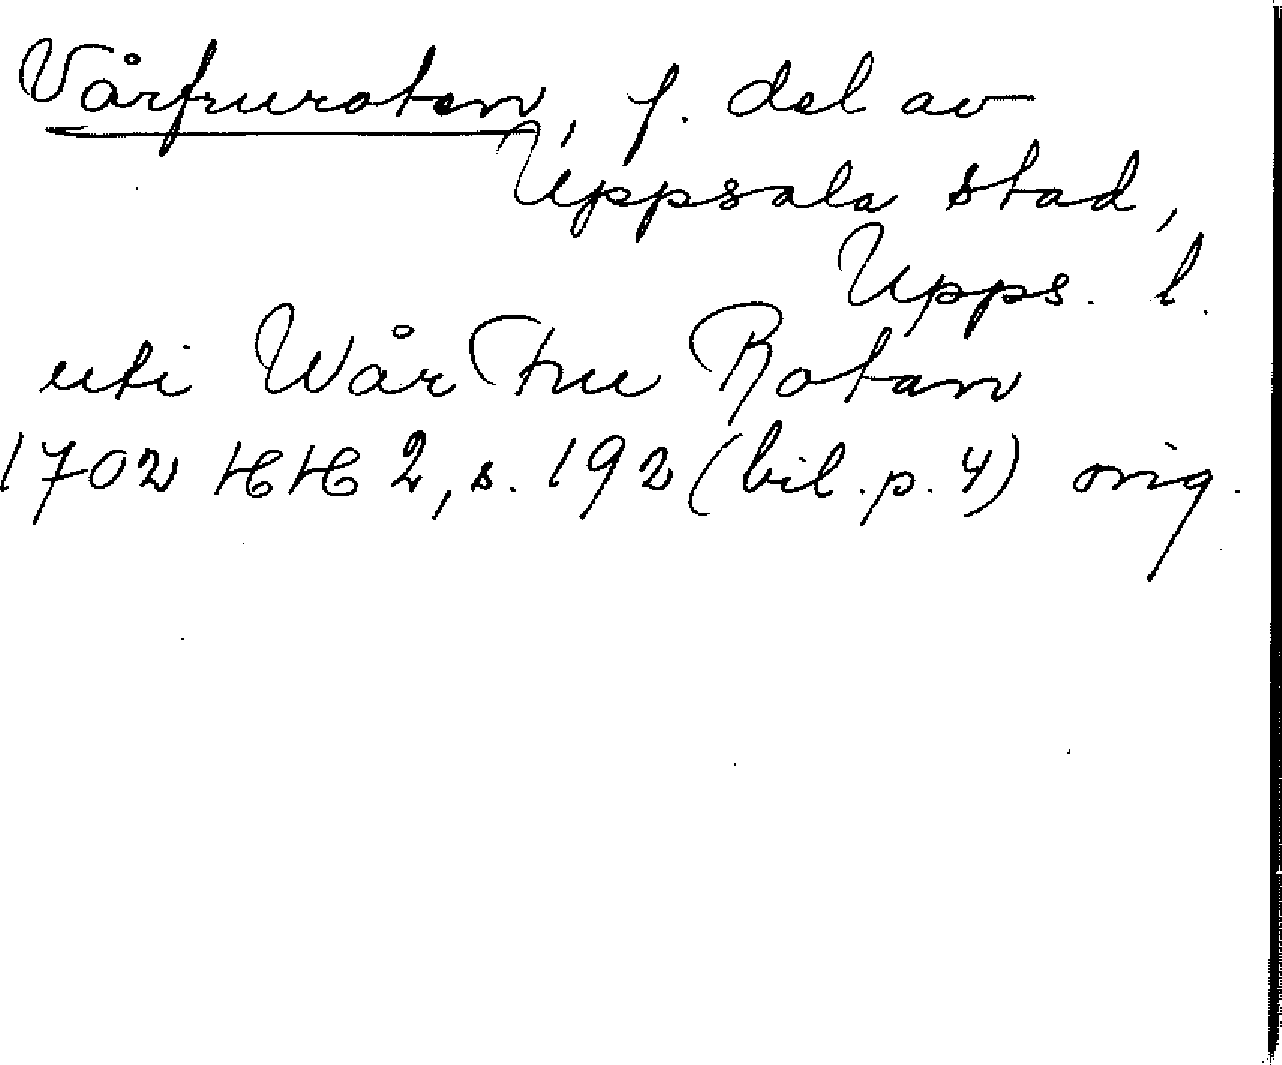 Vårfruroten, f. del av
Uppsala stad,
Upps. l.
uti Wår Fru Rotan
1702 HH 2, s. 192 (bil. p. 4) orig.